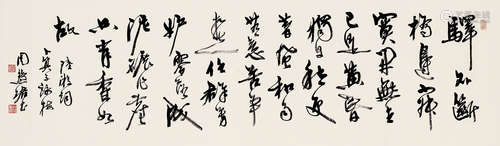 驛外斷
橋邊寂
寞開無主
已是黃昏
獨自愁更
著風和雨
無意苦爭
春一任群芳
妒零落成
泥碾作塵
只有香如
故
陸游詞
卜算子詠梅
周慧珺書